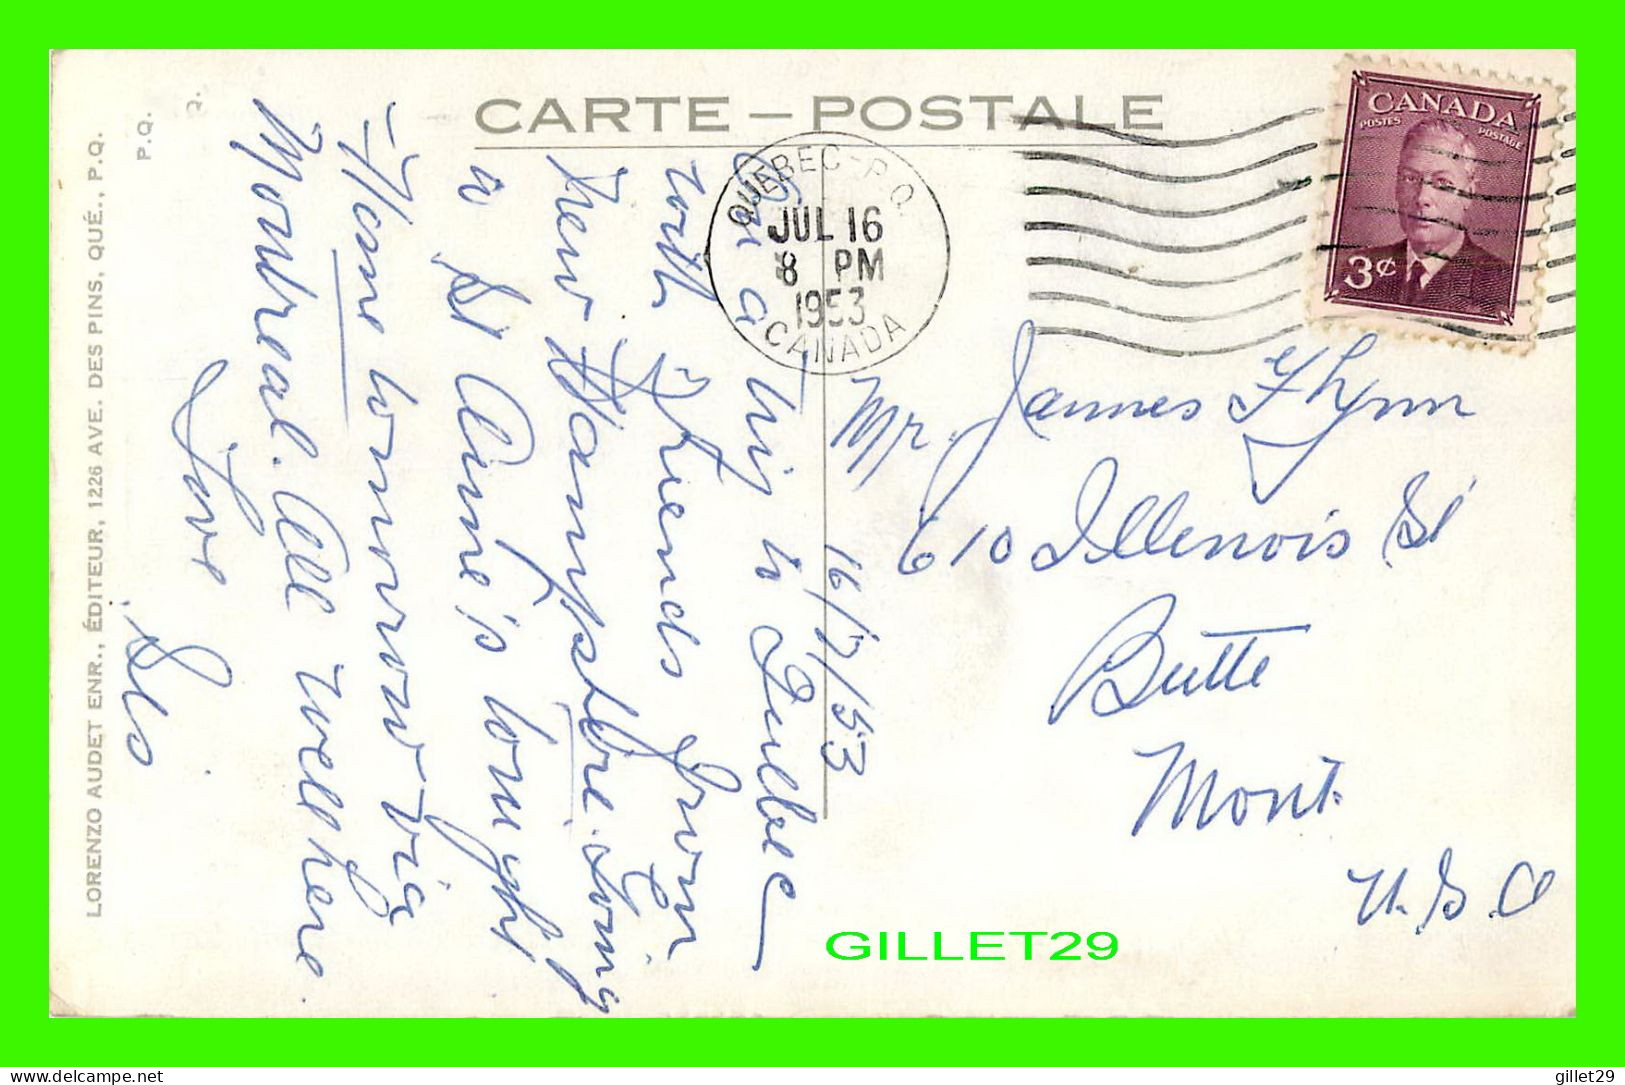 CARTE – POSTALE
QUEBEC - P.Q.
JUL 16
8 PM
1953
CANADA
CANADA
POSTES POSTAGE
3¢
16/7/53
On a trip to Quebec
with friends from
New Hampshire. Going
to St Anne's tonight
Home tomorrow via
Montreal. All well here.
Love
Mr. James Flynn
610 Illenois St
Butte
Mont.
U.S.A
LORENZO AUDET ENR., ÉDITEUR, 1226 AVE. DES PINS, QUÉ., P.Q.
P.Q.
Q.
GILLET29
gillet29